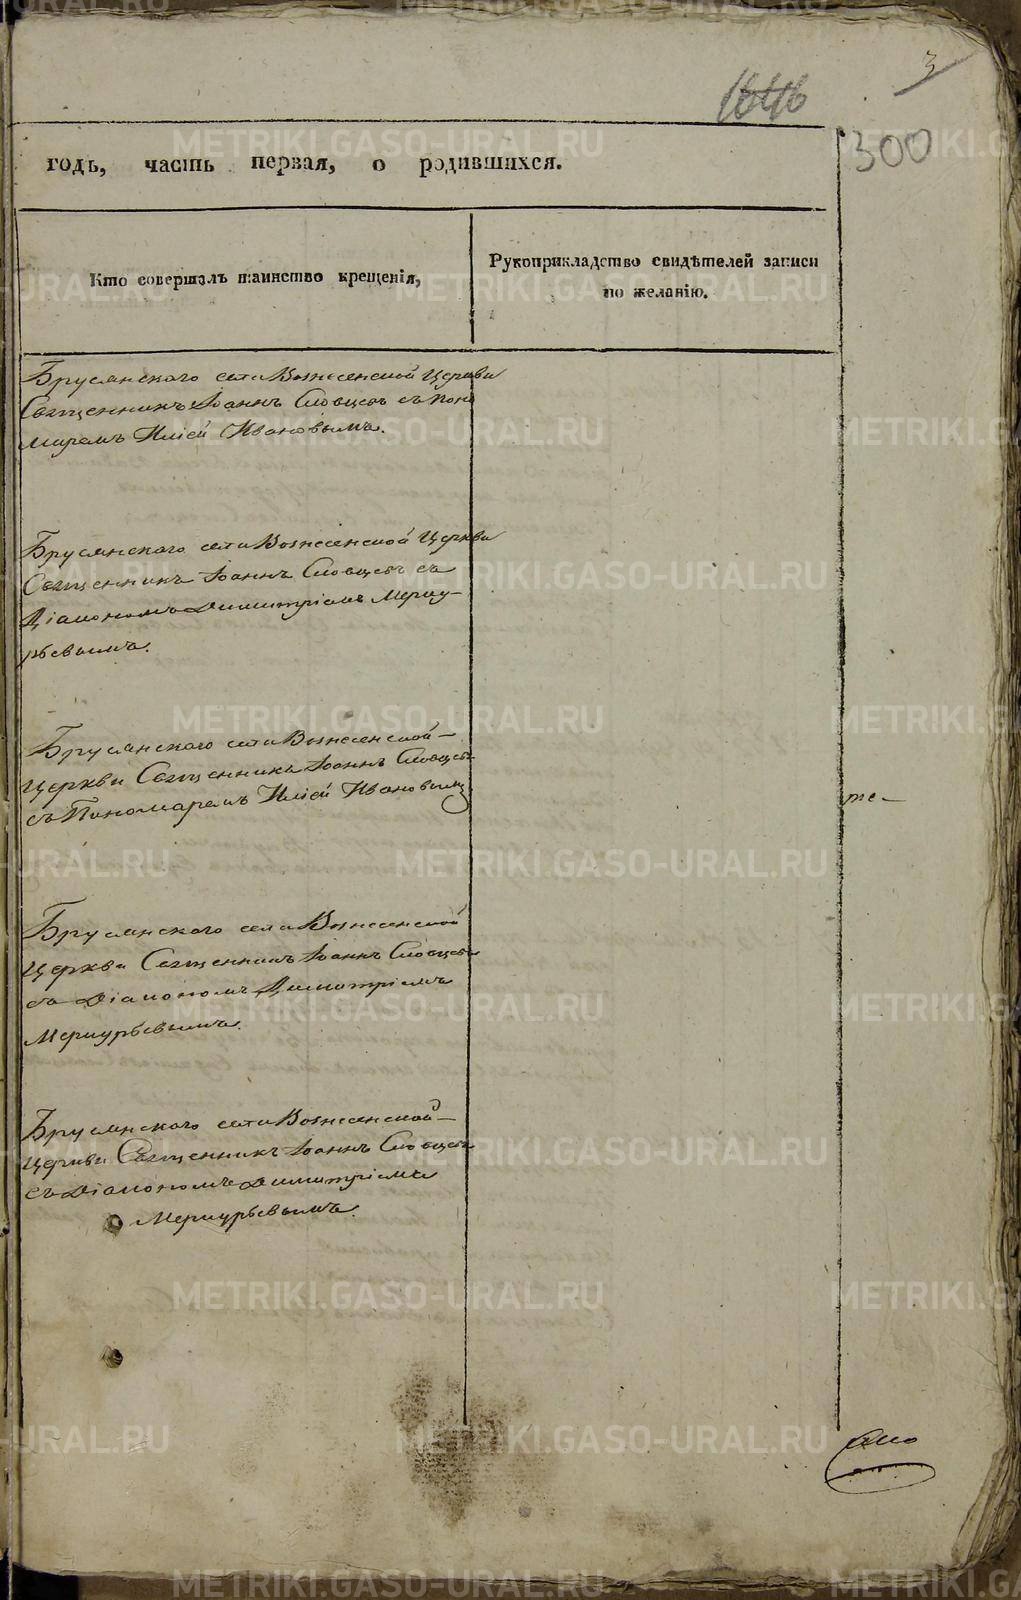 3
1646
300
годъ, часть первая, о родившихся.
Кто совершалъ таинство крещенія,
Рукоприкладство свидѣтелей записи
по желанію.
Бруснянского села Вознесенской Церкви
Священникъ Іоаннъ Словцевъ съ поно
маремъ Иліей Ивановымъ.
Бруснянского села Вознесенской Церкви
Священникъ Іоаннъ Словцевъ съ
Діакономъ Димитріемъ Мерку-
рьевымъ.
Бруснянского села Вознесенской-
Церкви Священникъ Іоаннъ Словцевъ
съ Пономаремъ Иліей Ивановымъ
те-
Бруснянского села Вознесенской
Церкви Священникъ Іоаннъ Словцевъ
съ Діакономъ Димитріемъ
Меркурьевымъ.
Бруснянского села Вознесенской-
Церкви Священникъ Іоаннъ Словцевъ
съ Діакономъ Димитріемъ
Меркурьевымъ.
METRIKI.GASO-URAL.RU